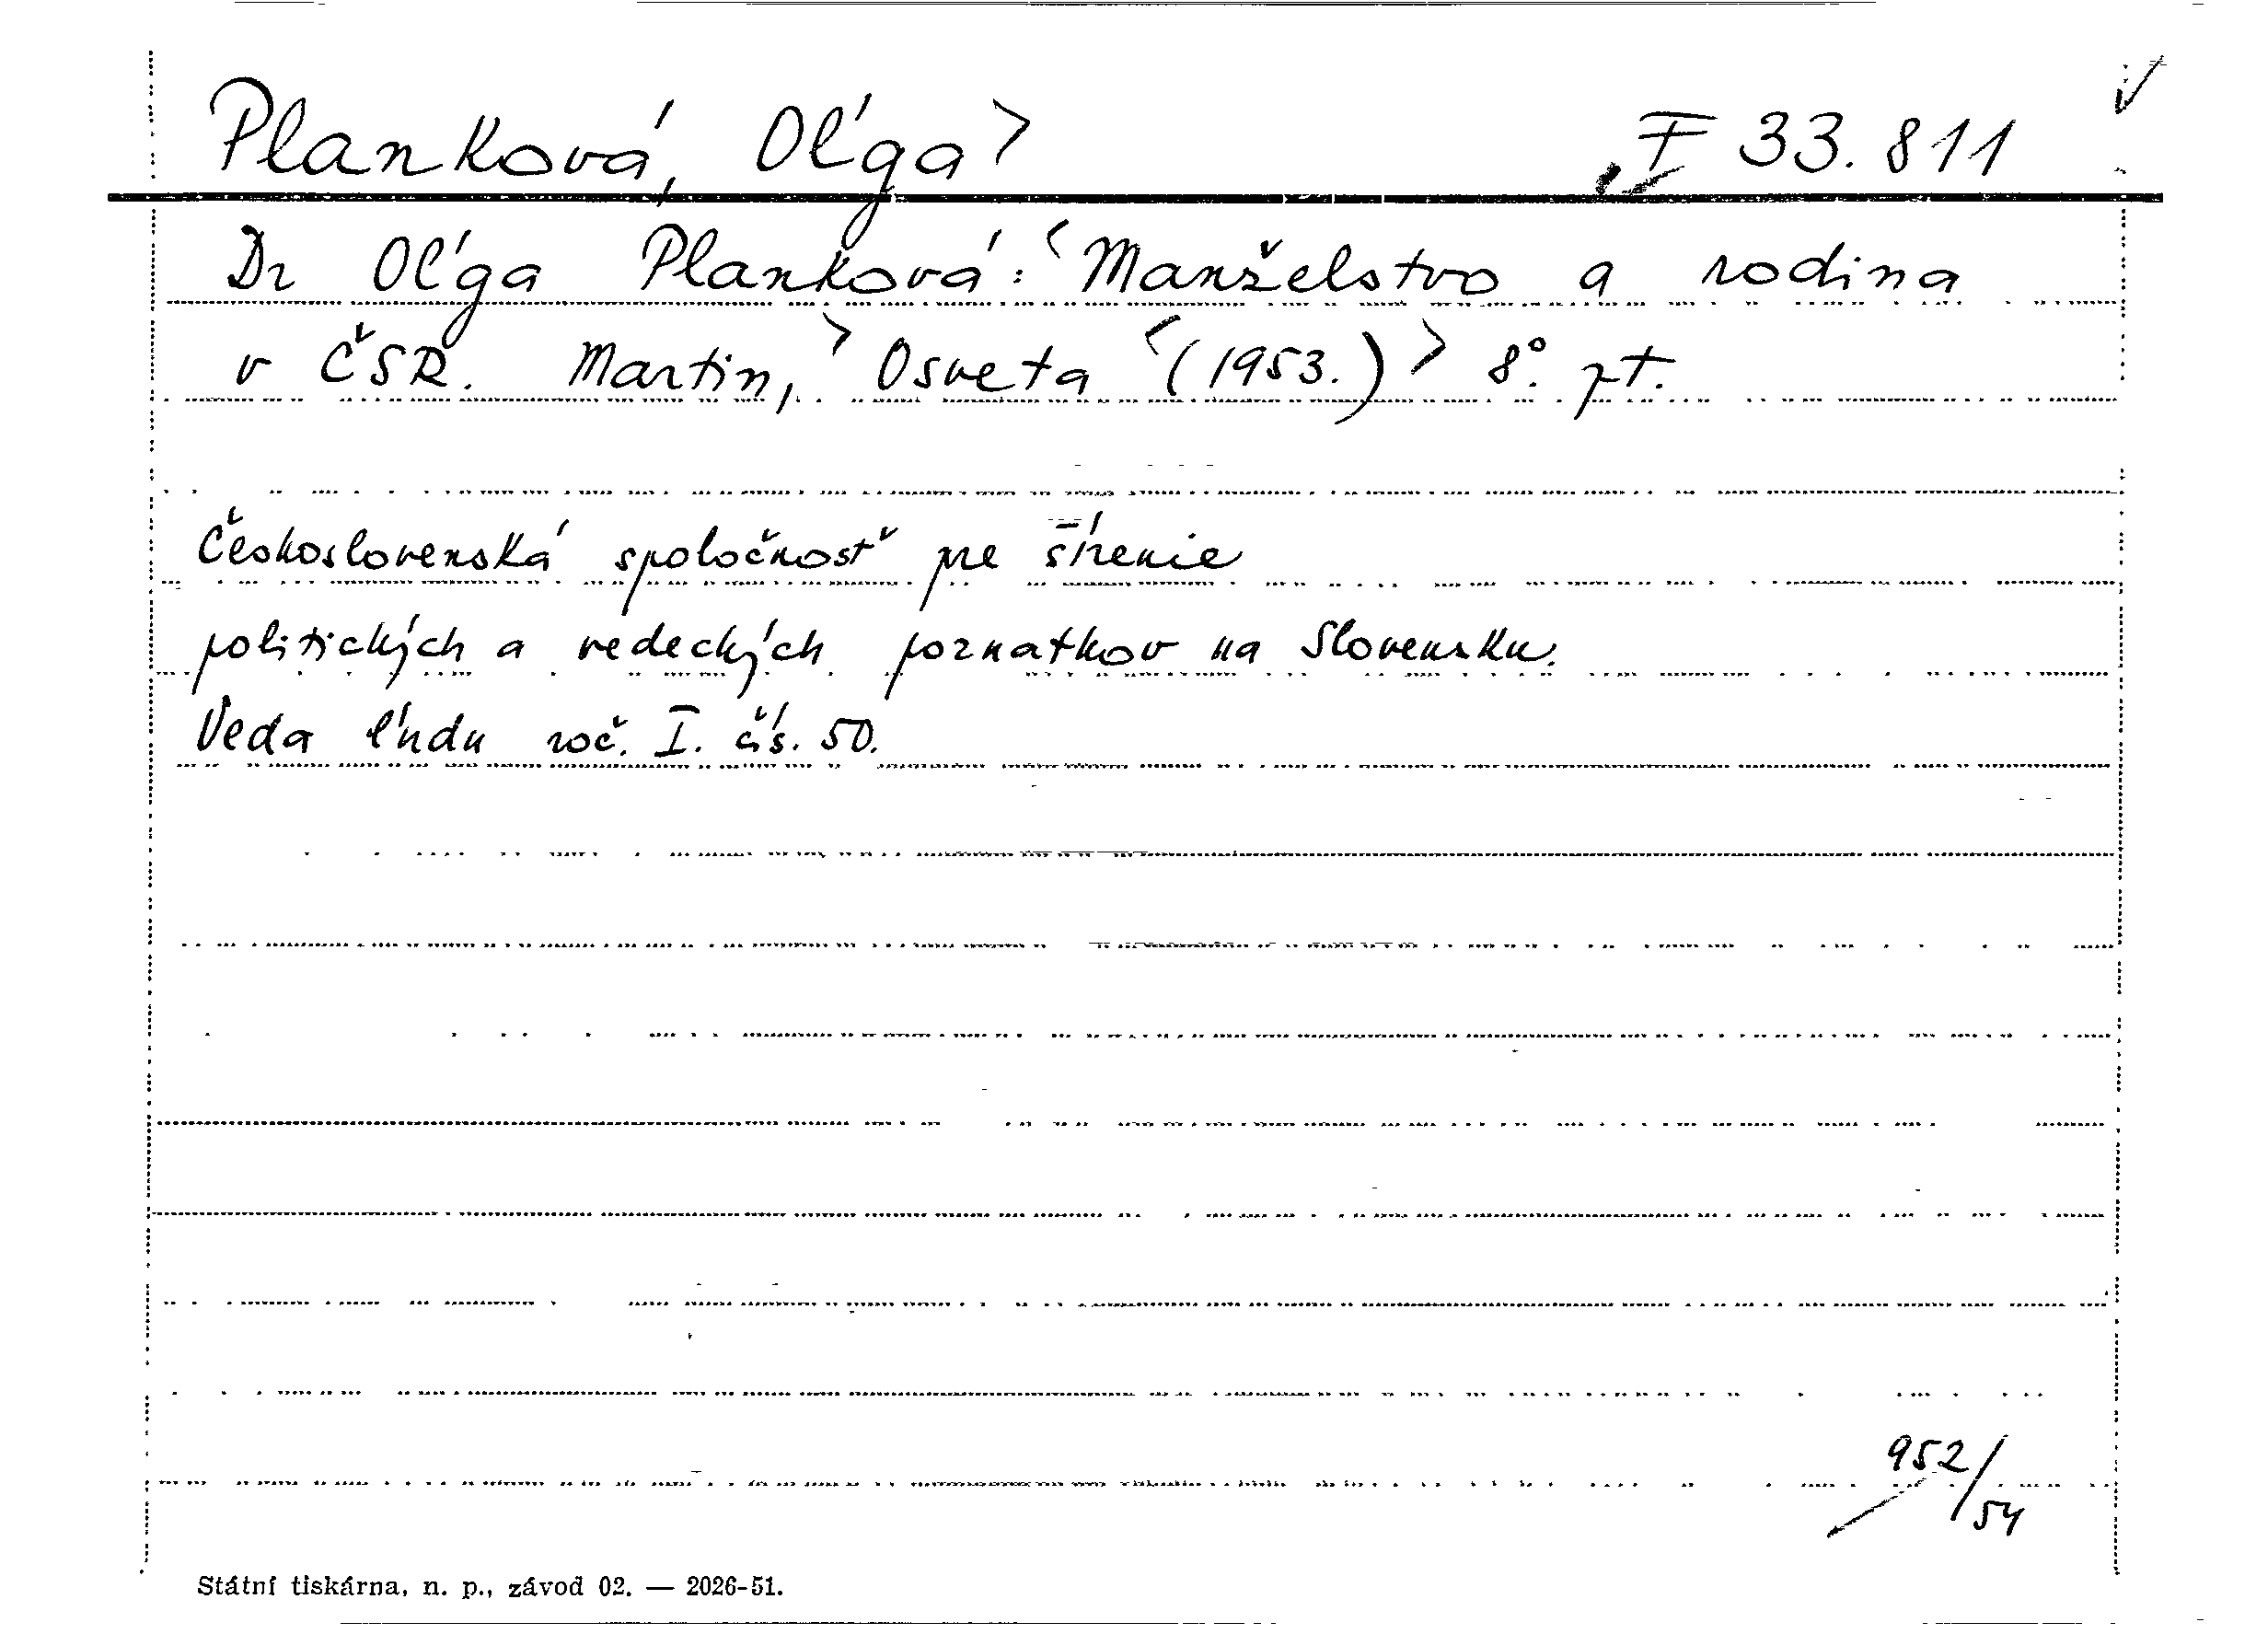 Planková, Oľga> I 33.811
Dr Oľga Planková: <Manželstvo a rodina
v ČSR. Martin,> Osveta <(1953.)> 8°. pt.
Československá spoločnosť pre šírenie
politických a vedeckých poznatkov na Slovensku.
Veda ľudu roč. I. čís. 50.
952/54
Státní tiskárna, n. p., závod 02. — 2026-51.